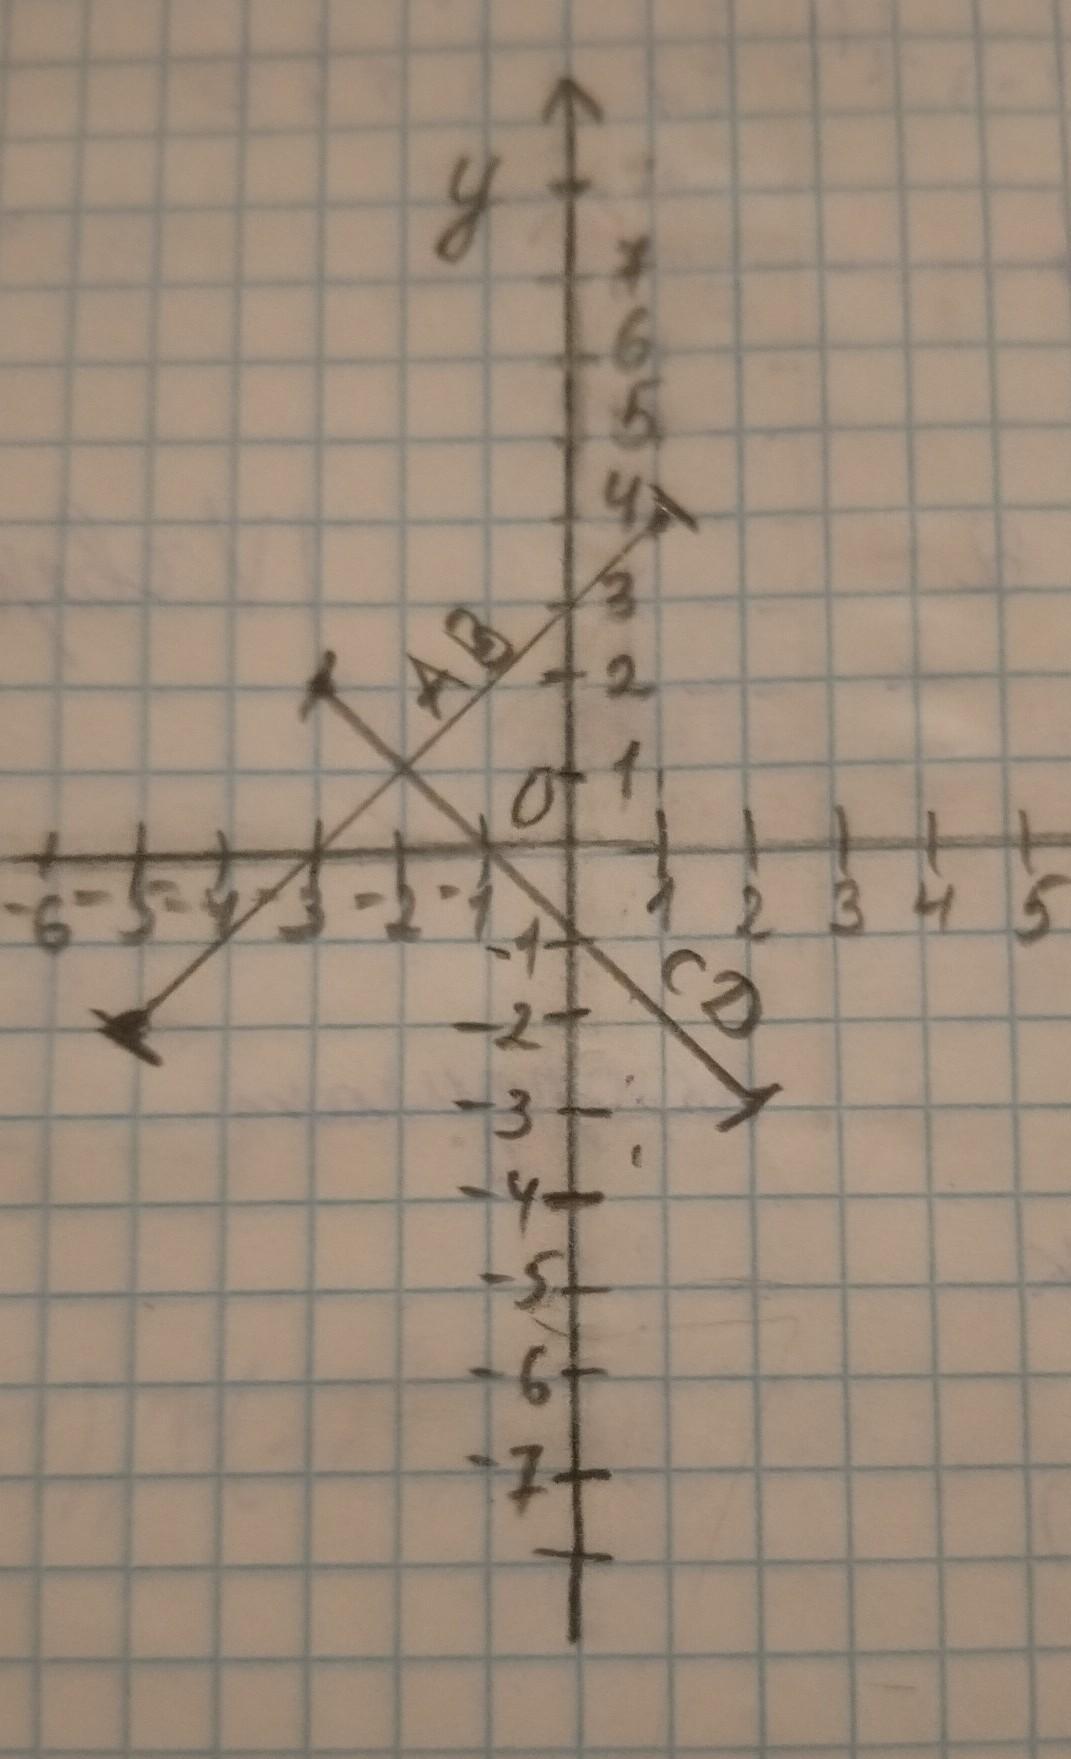 y
7
6
5
4
3
AB
2
0 1
-6 -5 -4 -3 -2 -1 1 2 3 4 5
-1
CD
-2
-3
-4
-5
-6
-7